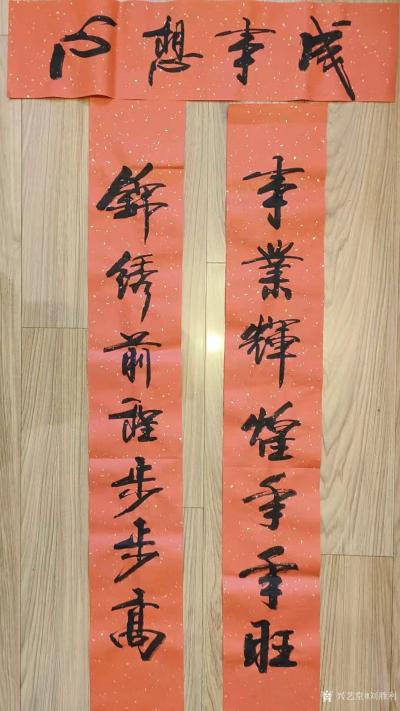 心想事成
事業輝煌年年旺
錦绣前程步步高
兴艺堂#刘胜利